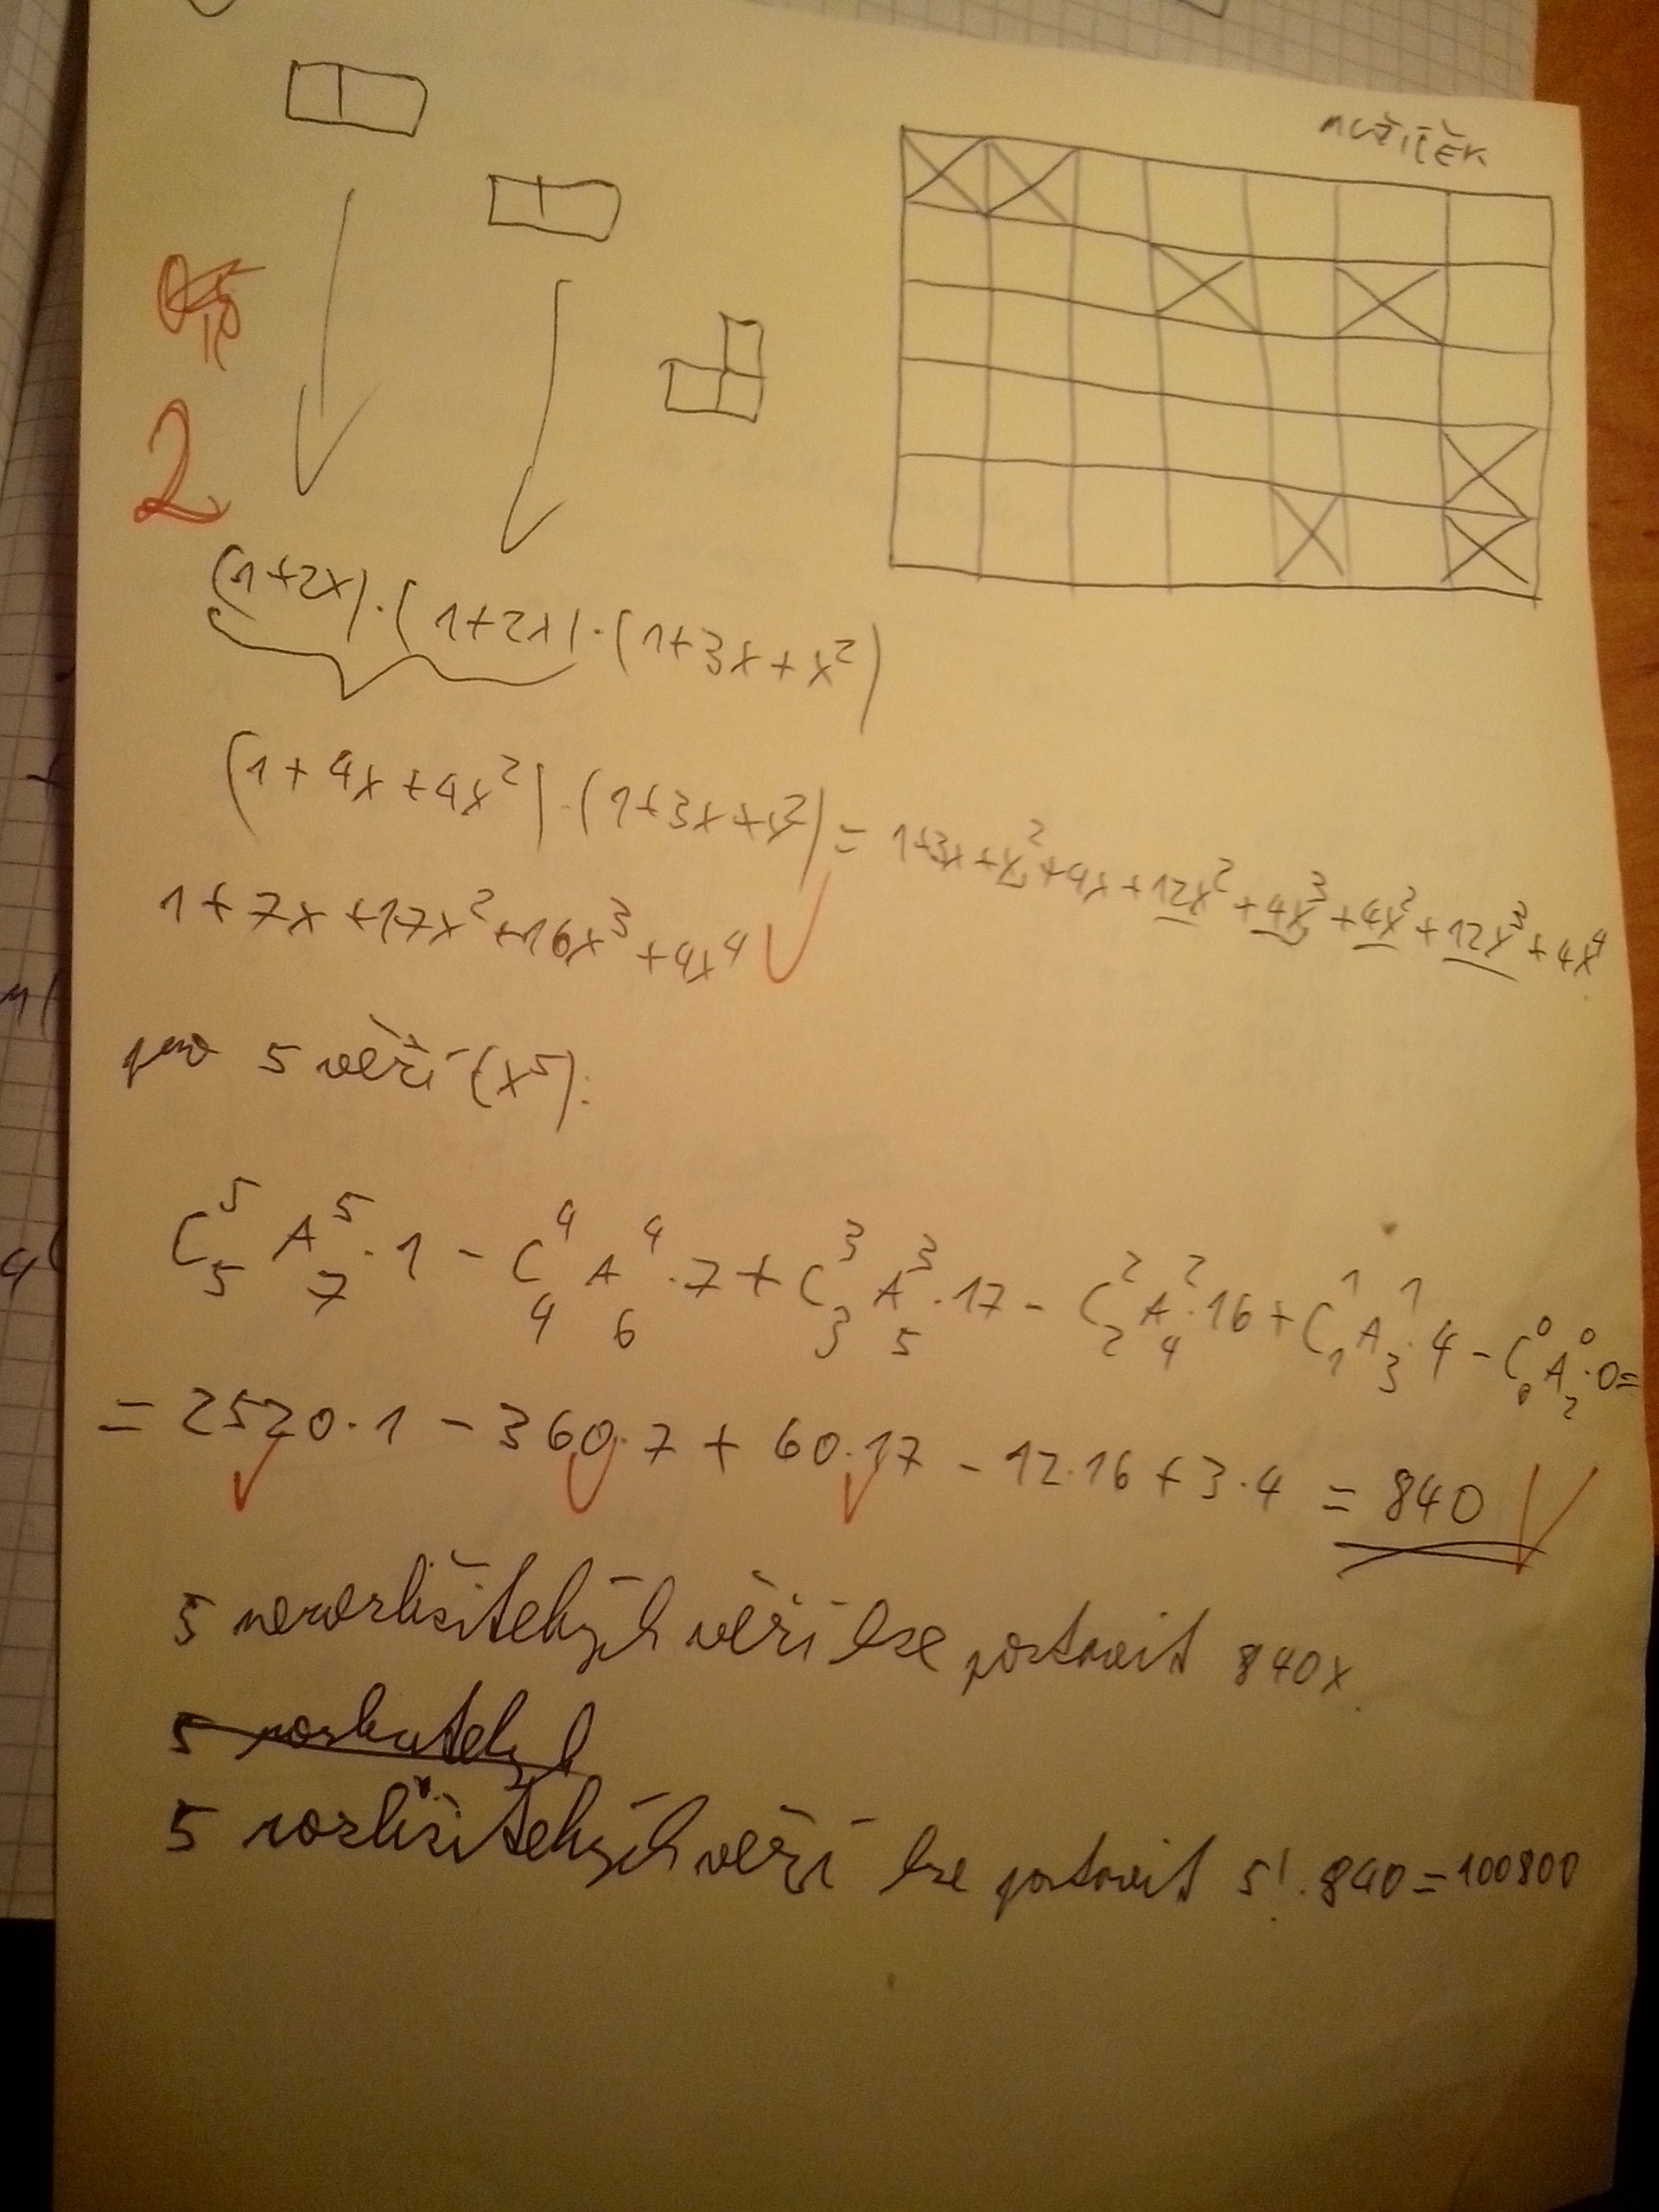 2
(1+2x)·(1+2x)·(1+3x+x²)
(1+4x+4x²)·(1+3x+x²) = 1+3x+x²+4x+12x²+4x³+4x²+12x³+4x⁴
1+7x+17x²+16x³+4x⁴
pro 5 věží (x⁵):
C₅⁵ A₇⁵·1 - C₄⁴ A₆⁴·7 + C₃³ A₅³·17 - C₂² A₄²·16 + C₁¹ A₃¹·4 - C₀⁰ A₂⁰·0 =
= 2520·1 - 360·7 + 60·17 - 12·16 + 3·4 = 840
5 nerozlišitelných věží lze postavit 840x.
5 rozlišitelných věží lze postavit 5!·840=100800